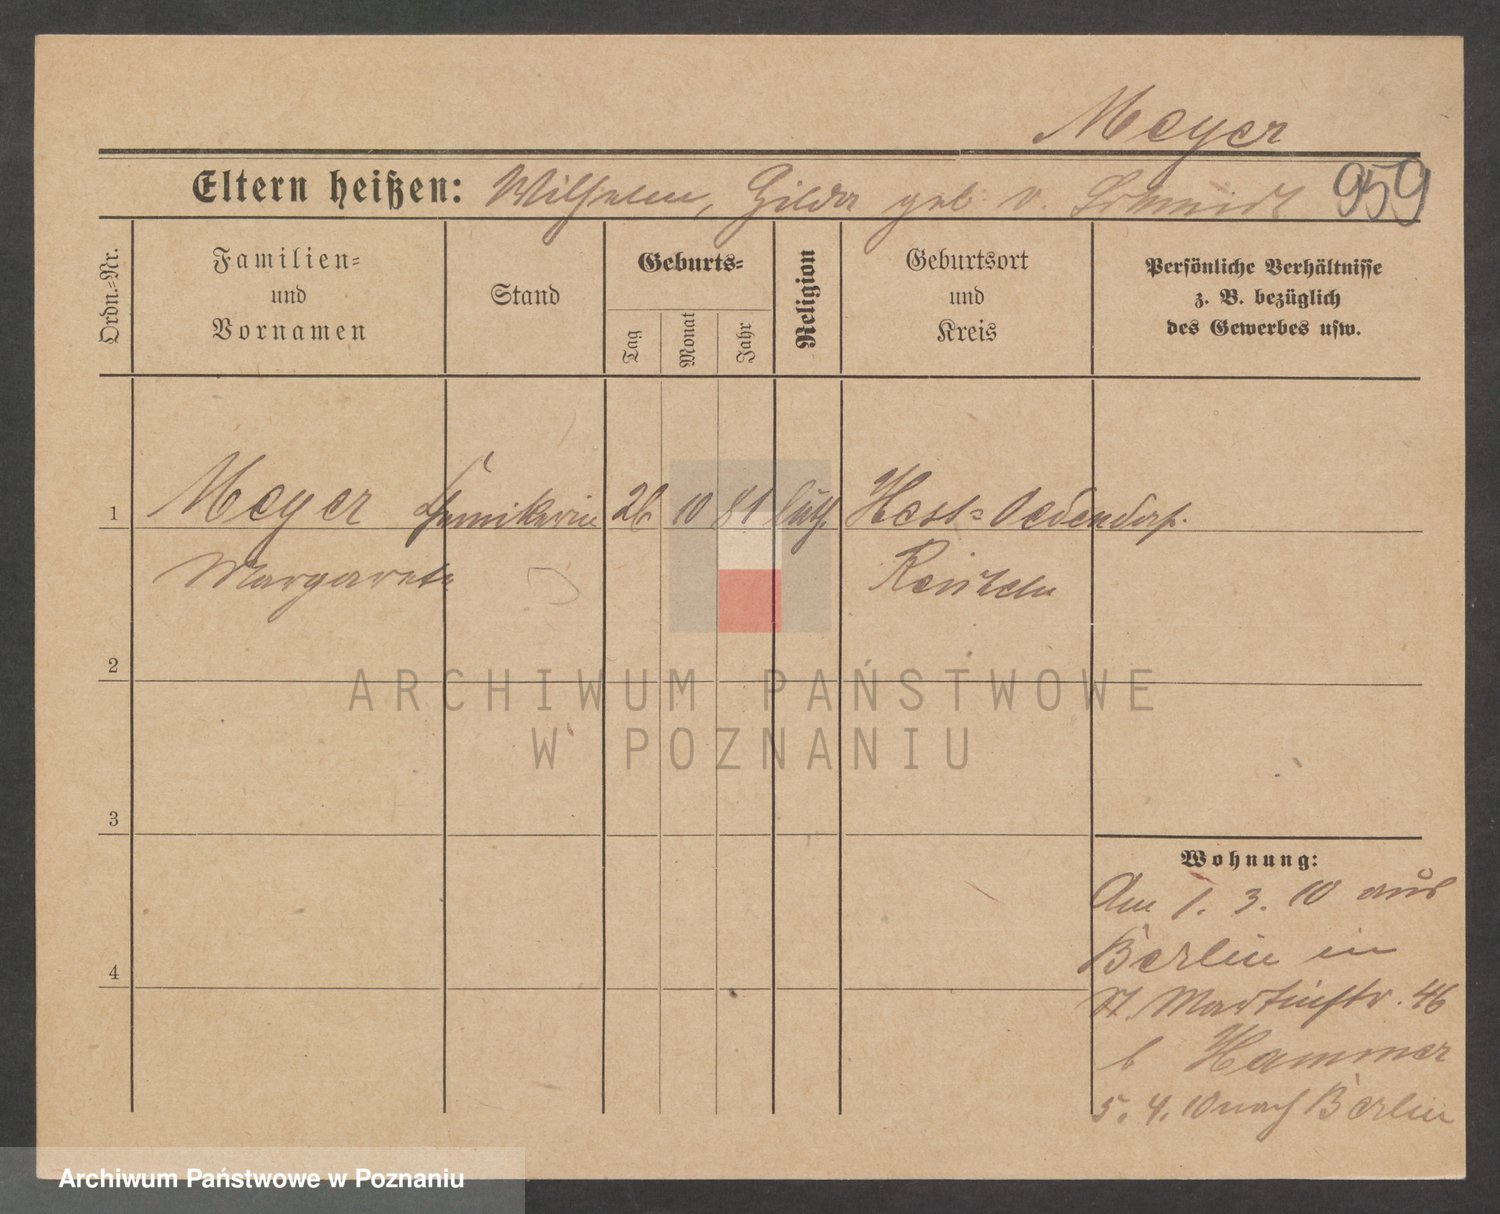 Meyer
Eltern heißen: Wilhelm, Hilda geb. v. Schmidt 959
Ordn.=Nr.
Familien=
und
Vornamen
Stand
Geburts=
Tag
Monat
Jahr
Religion
Geburtsort
und
Kreis
Persönliche Verhältnisse
z. B. bezüglich
des Gewerbes usw.
1 Meyer 26 10 81 luth. Hess= Oldendorf.
Margarete Rinteln
2
3
4
Wohnung:
Am 1. 3. 10 aus
Berlin in
St. Martinstr. 46
b Hammer
5. 4. 10 nach Berlin
ARCHIWUM PAŃSTWOWE
W POZNANIU
Archiwum Państwowe w Poznaniu